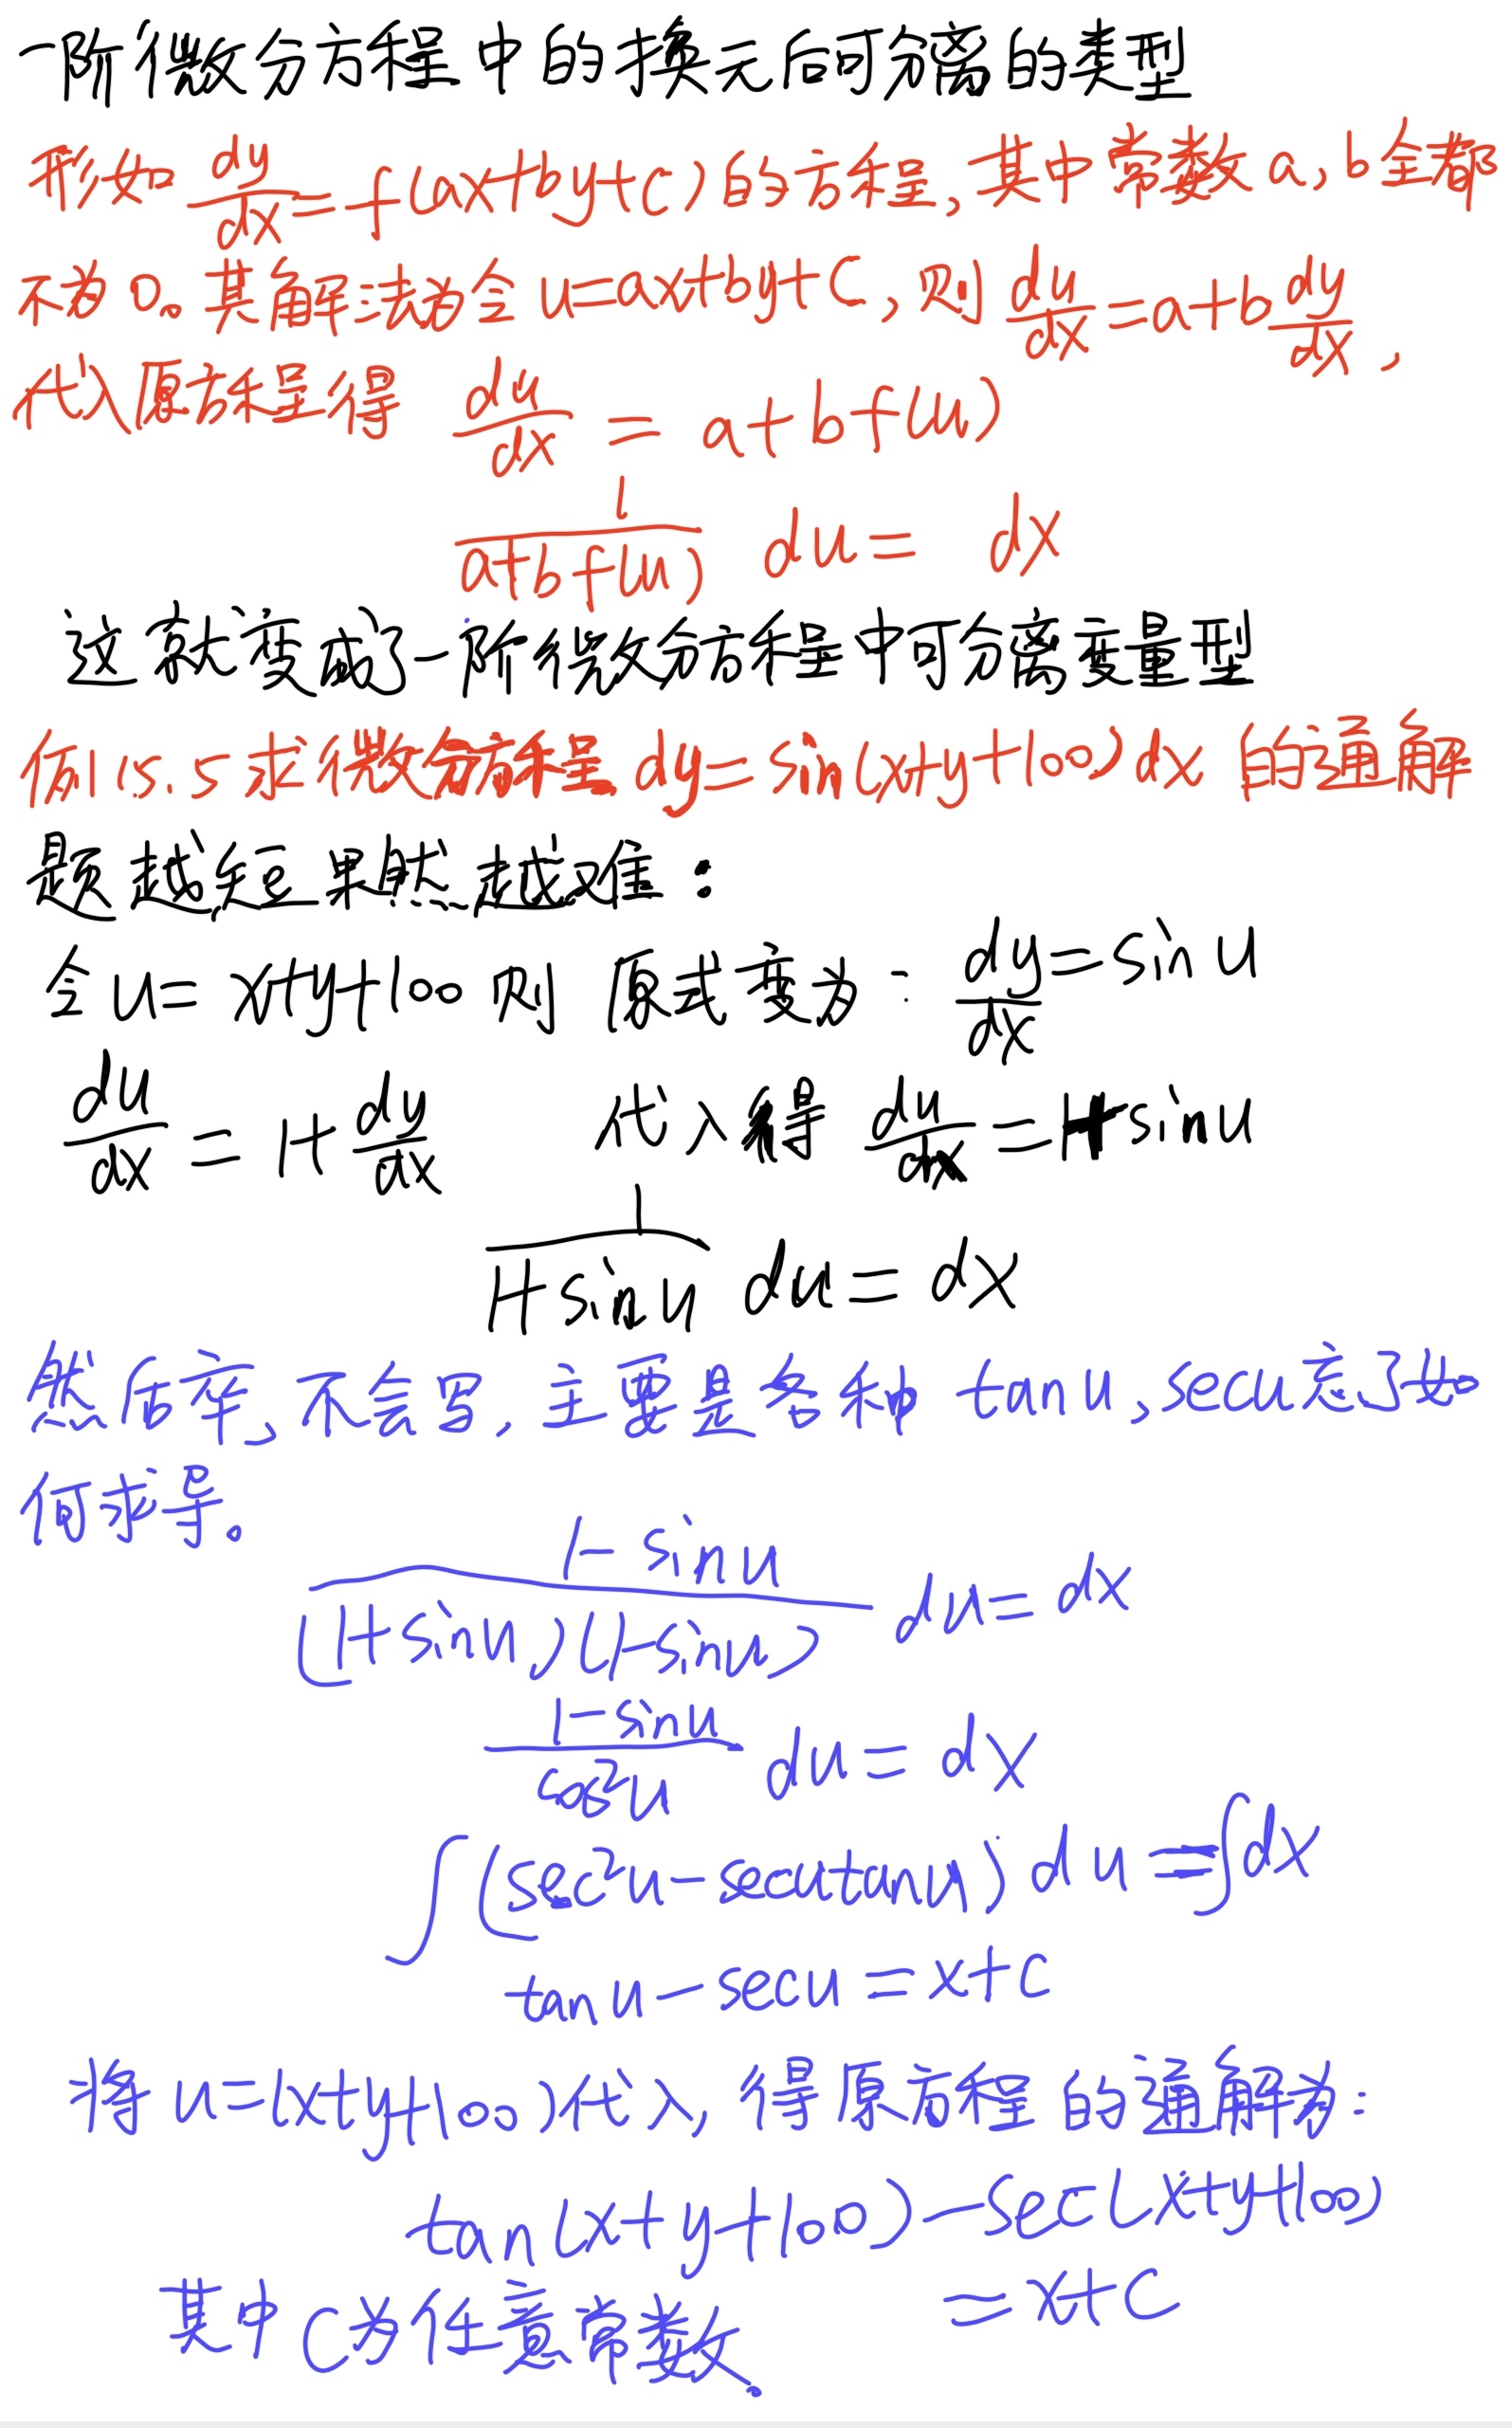 一阶微分方程中的换元后可分离的类型
形如 dy/dx=f(ax+by+c)的方程,其中常数a、b全都
不为0。其解法为令u=ax+by+c,则 du/dx=a+b dy/dx,
代入原方程得 du/dx = a+bf(u)
1/(a+bf(u)) du= dx
这就变成了一阶微分方程中可分离变量型
例15.5求微分方程dy=sin(x+y+100)dx 的通解
题越短果然越难:
令u=x+y+100则 原式变为: dy/dx=sin u
du/dx=1+dy/dx 代入得 du/dx=1+sin u
1/(1+sin u) du=dx
然后库,不会了,主要是忘掉tan u,sec u忘了如
何求导。
(1-sin u)/((1+sin u)(1-sin u)) du=dx
(1-sin u)/cos²u du=dx
∫(sec²u-sec u tan u)du=∫dx
tan u-sec u=x+c
将u=(x+y+100)代入,得原方程的通解为:
tan(x+y+100)-sec(x+y+100)
=x+C
其中C为任意常数。